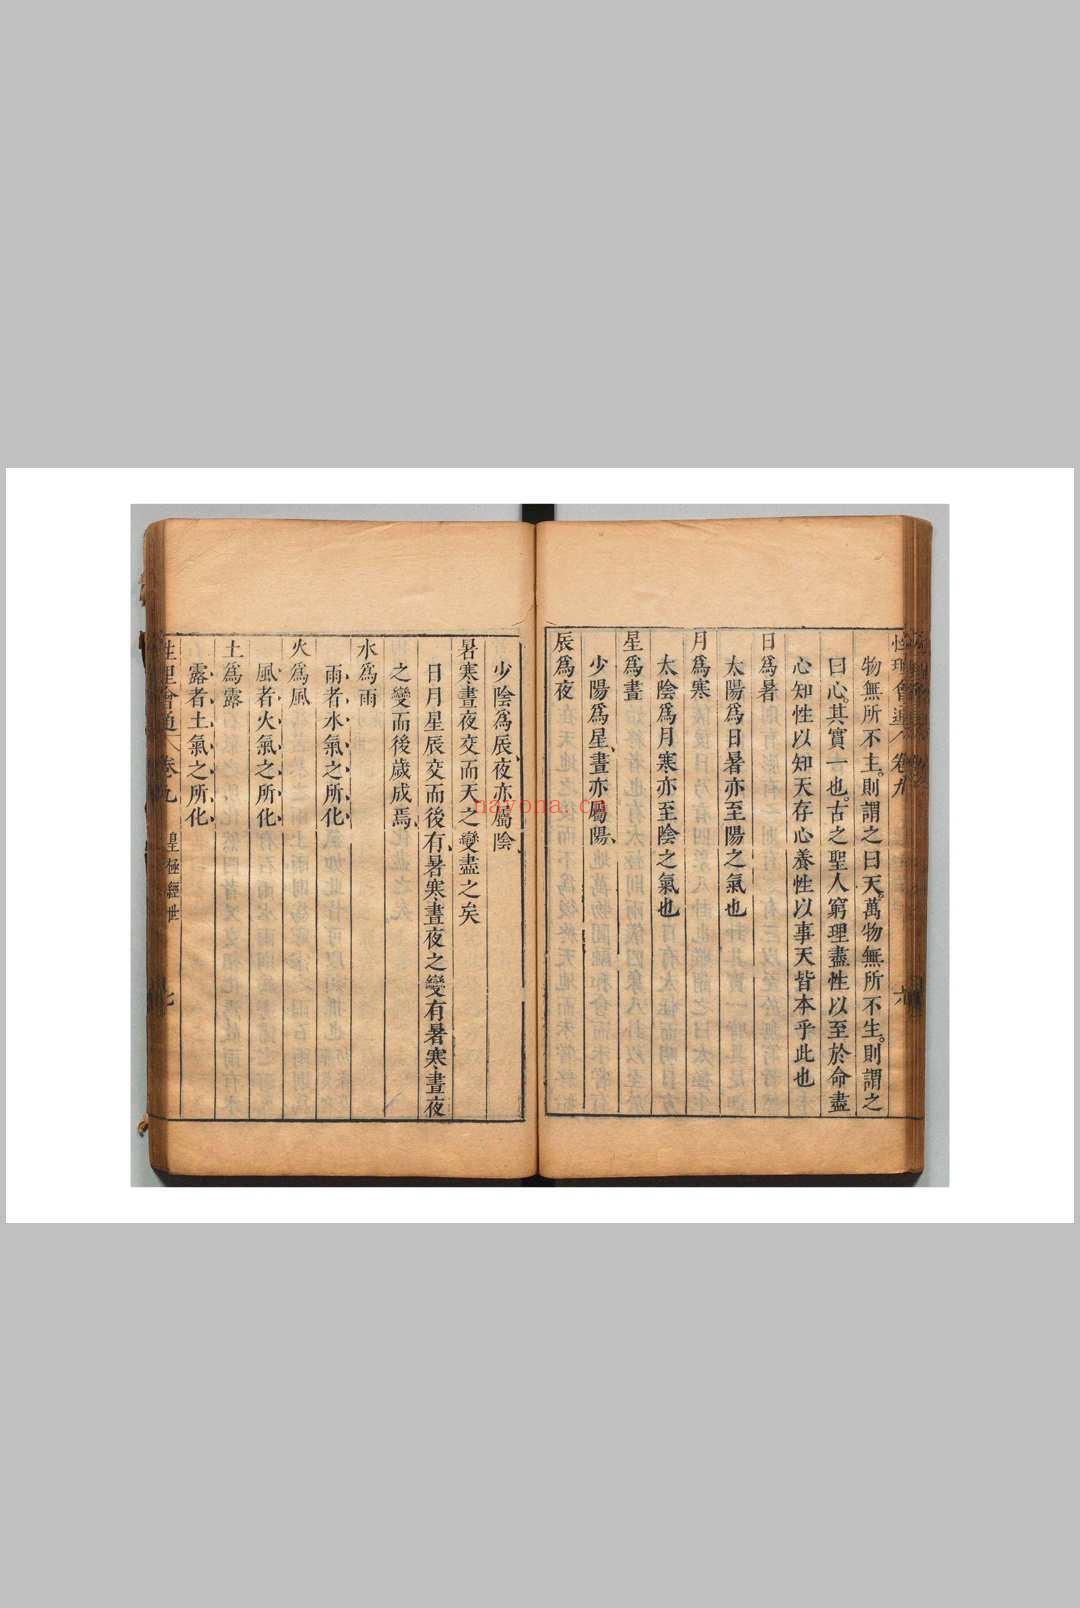 性理會通 卷九 六
物無所不主。則謂之曰天。萬物無所不生。則謂之
曰心。其實一也。古之聖人窮理盡性以至於命盡
心知性以知天存心養性以事天皆本乎此也
日為暑
太陽為日暑亦至陽之氣也
月為寒
太陰為月寒亦至陰之氣也
星為晝
少陽為星、晝亦屬陽、
辰為夜
少陰為辰、夜亦屬陰、
暑寒晝夜交而天之變盡之矣
日月星辰交而後有、暑寒晝夜之變有暑寒、晝夜
之變而後歲成焉、
水為雨
雨者水氣之所化
火為風
風者火氣之所化
土為露
露者土氣之所化
性理會通 卷九 皇極經世 七
nayona.cn